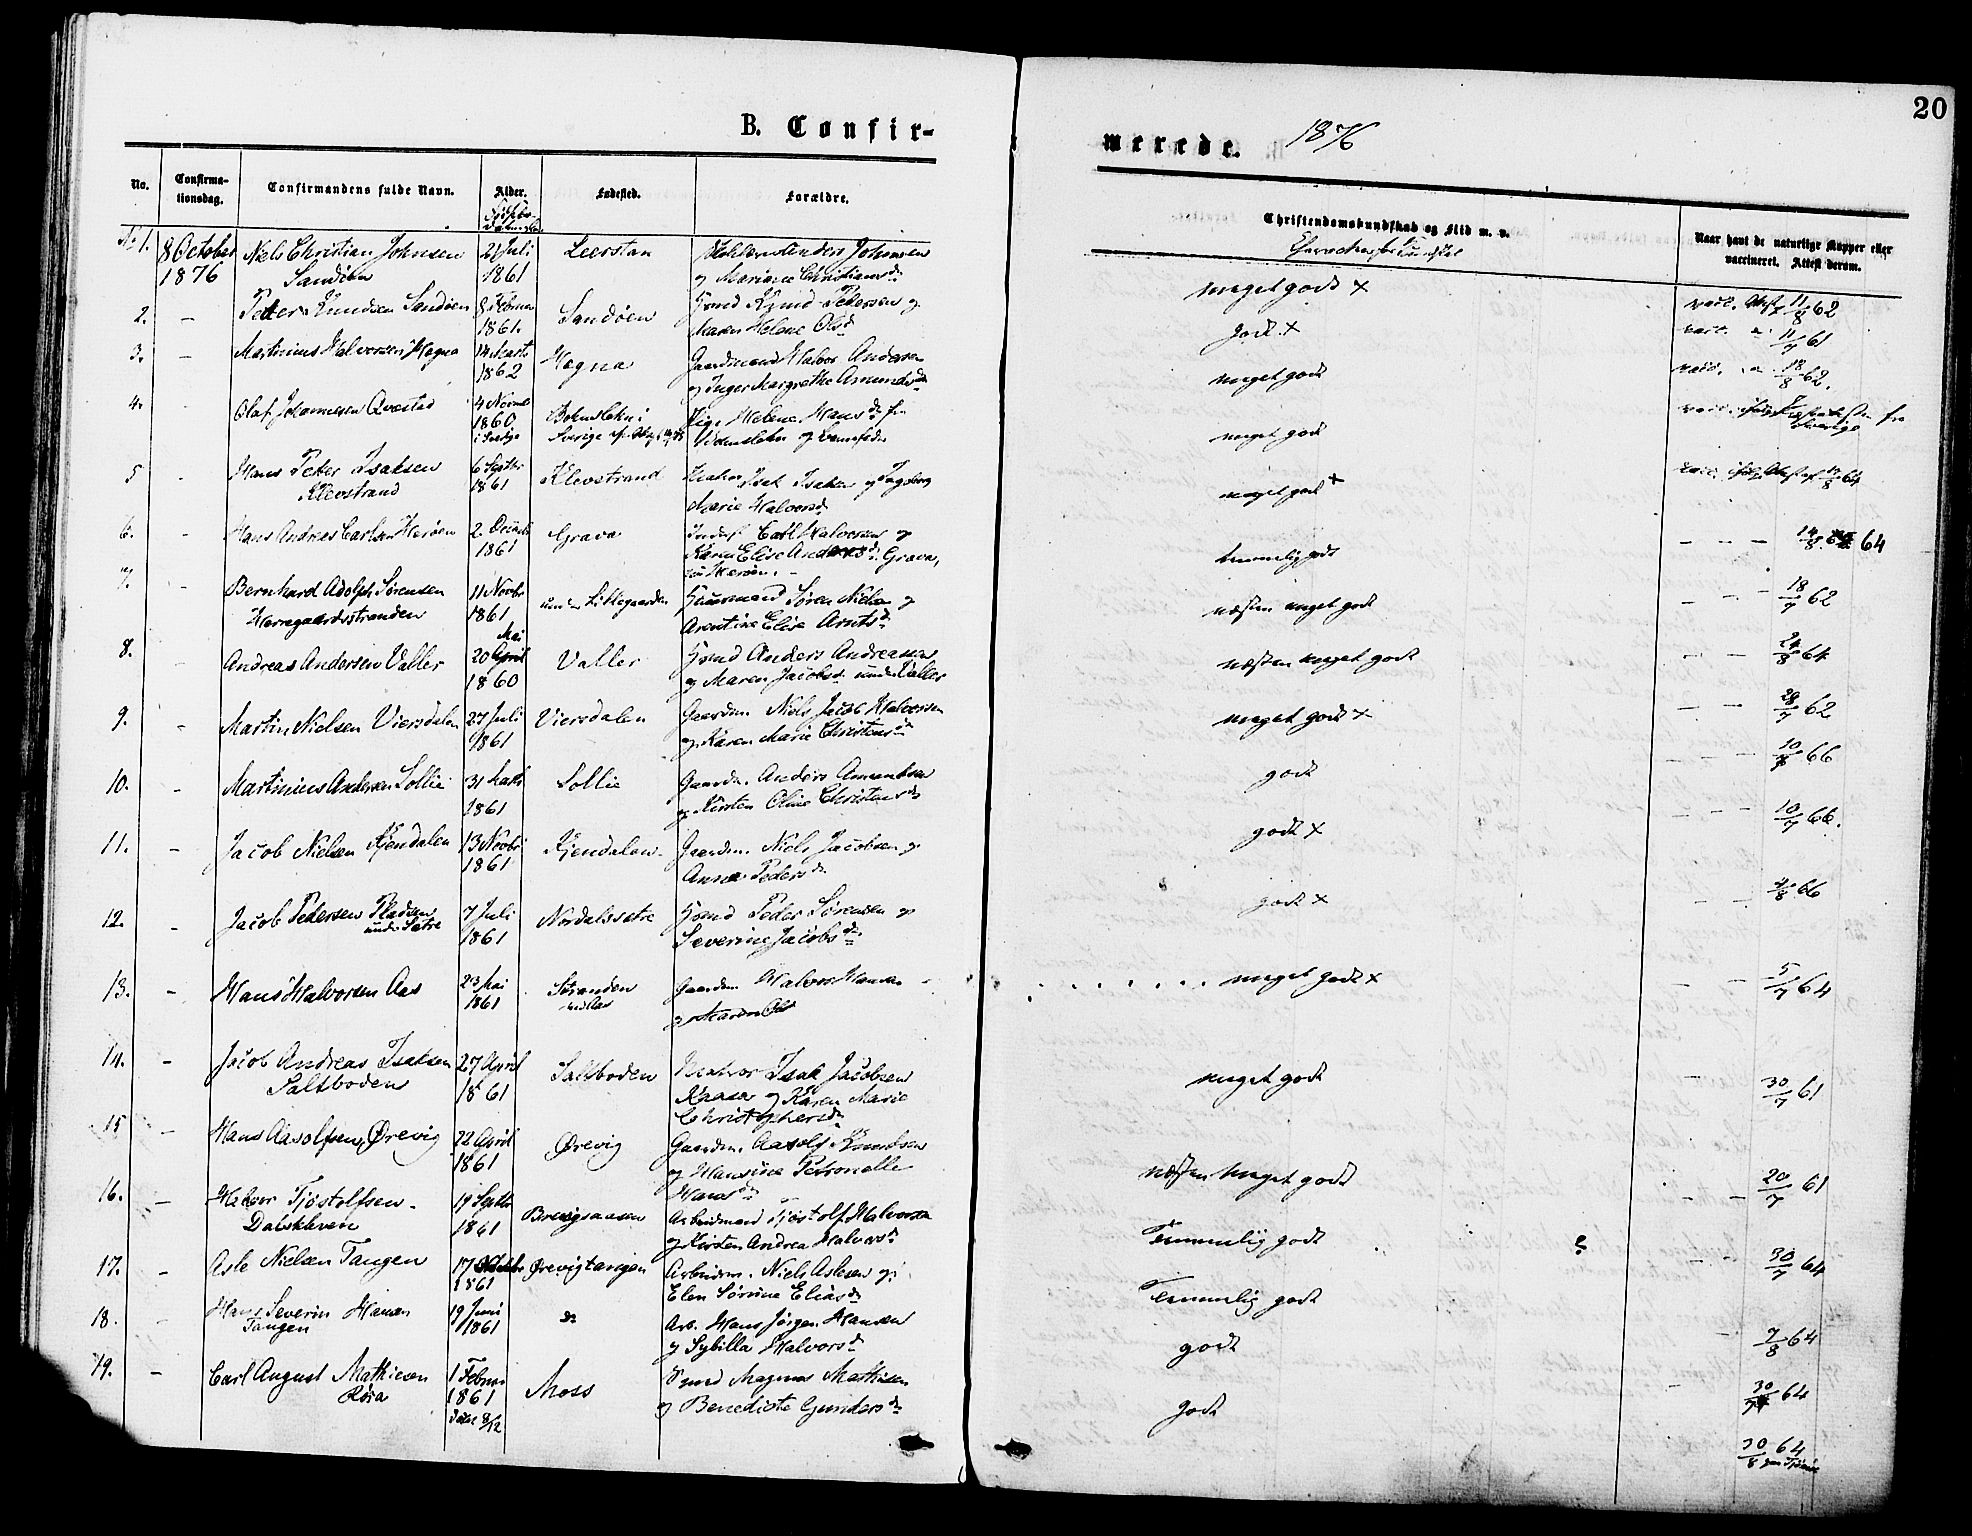 20
B. Confir-
merede. 1876
No.
Confirma-
tionsdag.
Confirmandens fulde Navn.
Alder.
Fødested.
Forældre.
Christendomskundskab og Flid m. v.
Naar havt de naturlige Kopper eller
vaccineret. Attest derom.
No 1.
8 October
1876
Niels Christian Johnsen
Sandöen
21 Juli
1861
Leerstan
Johnsen
og Mariane Christiansd.
meget godt x
vacc. Attest 11/8 62
2. -
Petter Knudsen Sandöen
8 Februar
1861.
Sandöen
Hsmd Knud Petersen og
Maren Helene Olsd
godt x
vacc. 11/7 61
3. -
Martinius Halvorsen Hogna
14 Marts
1862
Hogna
Gaardmand Halvor Andersen
og Inger Margrethe Amundsd
meget godt
vacc. 18/8 62.
4.
Olaf Johannesen Qvestad
4 Novmb
1860
i Sverige
Sverige
Pige Helene Hansd fra
meget godt
vacc. fra
Sverige
5 -
Hans Peter Isaksen
Klevstrand
6 Septbr
1861
Klevstrand
Isak Isaksen og Ingeborg
Marie Halvorsd
meget godt x
64
6. -
Hans Andreas Carlsen Herøen
2 Decmb
1861
Grava
Inders Carl Halvorsen og
Karen Elise Andersd. Grava,
Herøen. -
temmelig godt
- - - 14/8 64
7. -
Bernhard Adolph Sørensen
Herregaardsstranden
11 Novbr
1861
under Lillegaarden
Huusmand Søren Nielsen og
Arentine Elise Arntsd
næsten meget godt
- - - 18/7 62
8. -
Andreas Andersen Valler
Mai
20 April
1860
Valler
Hsmd Anders Andreasen
og Maren Jacobsd. under Valler
næsten meget godt
- - 24/8 64
9. -
Martin Nielsen Viersdalen
27 Juli
1861
Viersdalen
Gaardm. Niels Jacob Halvorsen
og Karen Marie Christensd
meget godt x
- - 28/7 62
10. -
Martinius Andersen Sollie
31 Marts
1861
Sollie
Gaardm. Anders Amundsen
og Kirsten Oline Christensd
godt
- - 10/8 66
11. -
Jacob Nielsen Kjendalen
13 Novbr
1861
Kjendalen.
Gaardm. Niels Jacobsen og
Anne Pedersd
godt x
- - 10/7 66.
12. -
Jacob Pedersen Pladsen
under Sætre
7 Juli
1861
Nordalssetre
Hsmd Peder Sørensen og
Severine Jacobsd
godt x
- - 66
13. -
Hans Halvorsen Aas
23 Mai
1861
Stranden
under Aas
Gaardm. Halvor Hansen
og Maren Olsd
meget godt x
- - 5/7 64
14. -
Jacob Andreas Isaksen
Saltboden
27 April
1861
Saltboden
Isak Jacobsen
Kaasa og Karen Marie
Christophersd
meget godt
- 30/7 61
15 -
Hans Aasolfsen Ørevig
22 April
1861
Ørevig
Gaardm. Aasolf Knudsen
og Hansine Petronelle
Hansd
næsten meget godt
- - 20/7 61
16. -
Halvor Tjøstolfsen
Dalskleven
19 Septbr
1861
Brevigsaasen
Arbeidsmand Tjøstolf Halvorsen
og Kirsten Andrea Halvorsd
Temmelig godt
- - 30/7 64
17. -
Asle Nielsen Tangen
17 Oktobr
1861
Ørevigtangen
Arbeidsm. Niels Aslesen og
Elen Sørine Eliasd
Temmelig godt
- 7/8 64
18. -
Hans Severin Hansen
Tangen
19 Juni
1861
do
Arb. Hans Jørgen Hansen
og Sybilla Halvorsd
godt
- 30/7 64
19. -
Carl August Mathiesen
Røra
1 Februar
1861
døbt 8/12
Moss
Hsmd Magnus Mathisen
og Benedicte Gundersd
godt
30/8 64